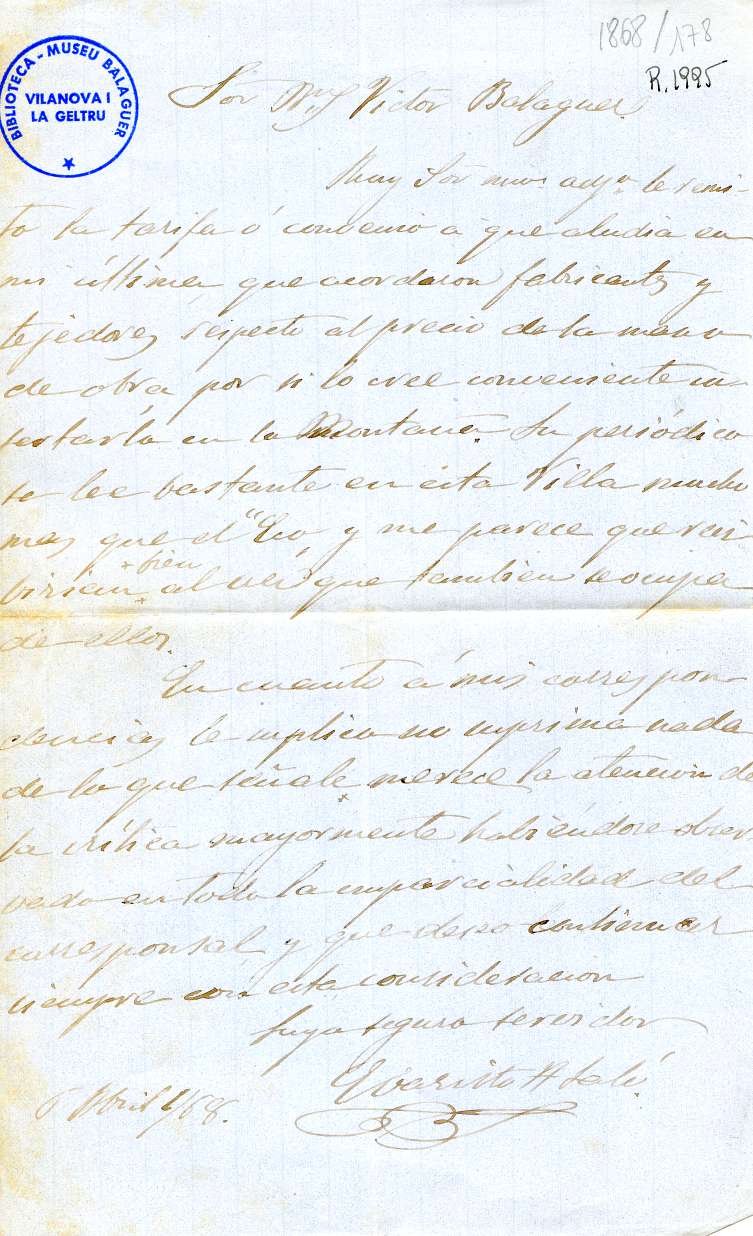 1868/178
R. 1995
BIBLIOTECA - MUSEU BALAGUER
VILANOVA I
LA GELTRU
Sor Victor Balaguer.
Muy Sor mio: adjo. le remi-
to la tarifa ó convenio a que aludia en
mi última que acordaron fabricantes y
tejedores respecto al precio de la mano
de obra por si lo cree conveniente in-
sertarla en la Montaña. Su periódico
se lee bastante en esta Villa mucho
mas que el "Eco" y me parece que reci-
birian bien al ver que tambien se ocupa
de ellos.
En cuanto á mis correspon
dencias le suplico no suprima nada
de lo que señale merece la atencion de
la critica mayormente habiéndose obser
vado en todo la imparcialidad del
corresponsal y que deseo continuar
siempre con esta consideracion
Suyo seguro servidor
Evaristo
6 Abril 1/68.